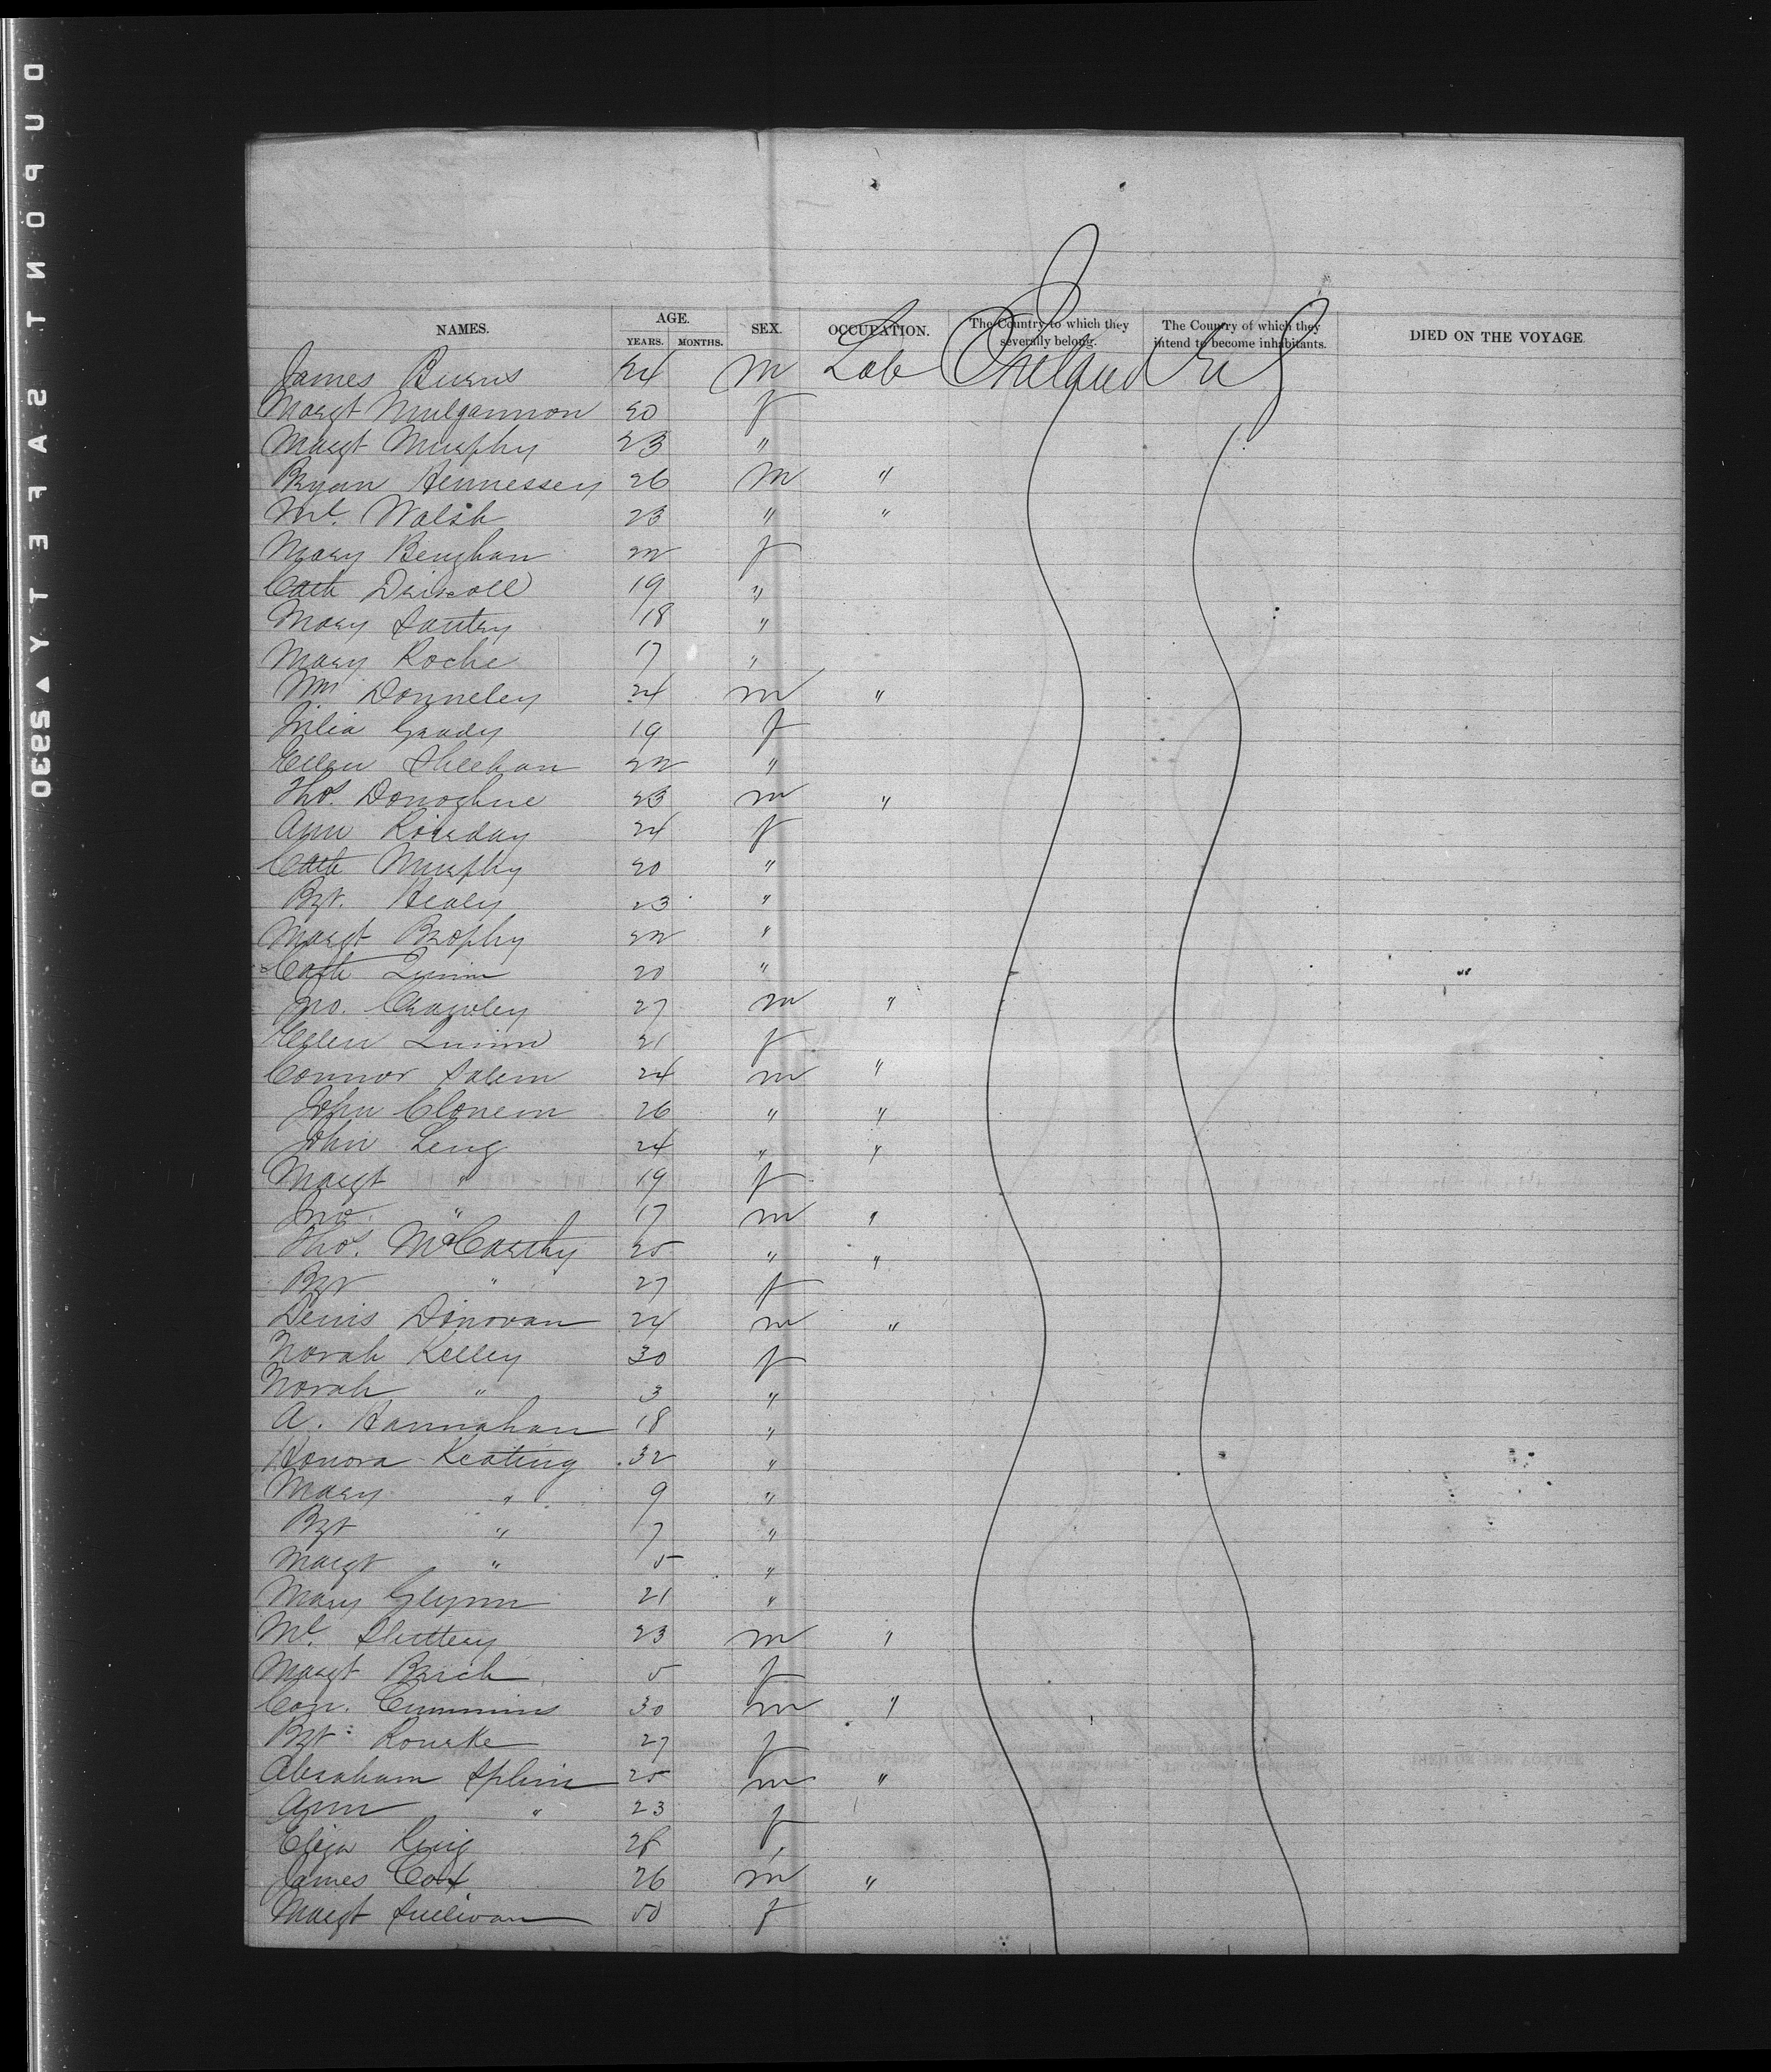 NAMES. AGE. SEX. OCCUPATION. The Country to which they severally belong. The Country of which they intend to become inhabitants. DIED ON THE VOYAGE
YEARS. MONTHS.
James Burns 24 m Lab Ireland U S
Margt Mulgannon 20 f
Margt Murphy 23 "
Bryan Hennessey 26 m "
Ml. Walsh 23 " "
Mary Benghan 22 f
Cath Driscoll 19 "
Mary Santry 18 "
Mary Roche 17 "
Wm Donneley 24 m "
Julia Grady 19 f
Ellen Sheehan 22 "
Thos. Donoghue 23 m "
Ann Rierday 24 f
Cath Murphy 20 "
Bgt. Healy 23 "
Margt Brophy 22 "
Cath Quinn 20 "
Jno. Crawley 27 m "
Ellen Quinn 21 f
Connor Salem 24 m "
John Clonein 26 " "
John Leng 24 " "
Margt " 19 f
Jno. " 17 m "
Thos. McCarthy 25 " "
Bgt " 27 f
Denis Donovan 24 m "
Norah Kelley 30 f
Norah " 3 "
A. Hannahan 18 "
Honora Keating 32 "
Mary " 9 "
Bgt " 7 "
Margt " 5 "
Mary Glynn 21 "
Ml. Sluttery 23 m "
Margt Brick 5 f
Con. Cummins 30 m "
Bgt Rourke 27 f
Abraham Splin 25 m "
Ann " 23 f
Eliza King 28 "
James Cox 26 m "
Margt Sullivan 50 f
DUPONT SAFETY 0ES 5230